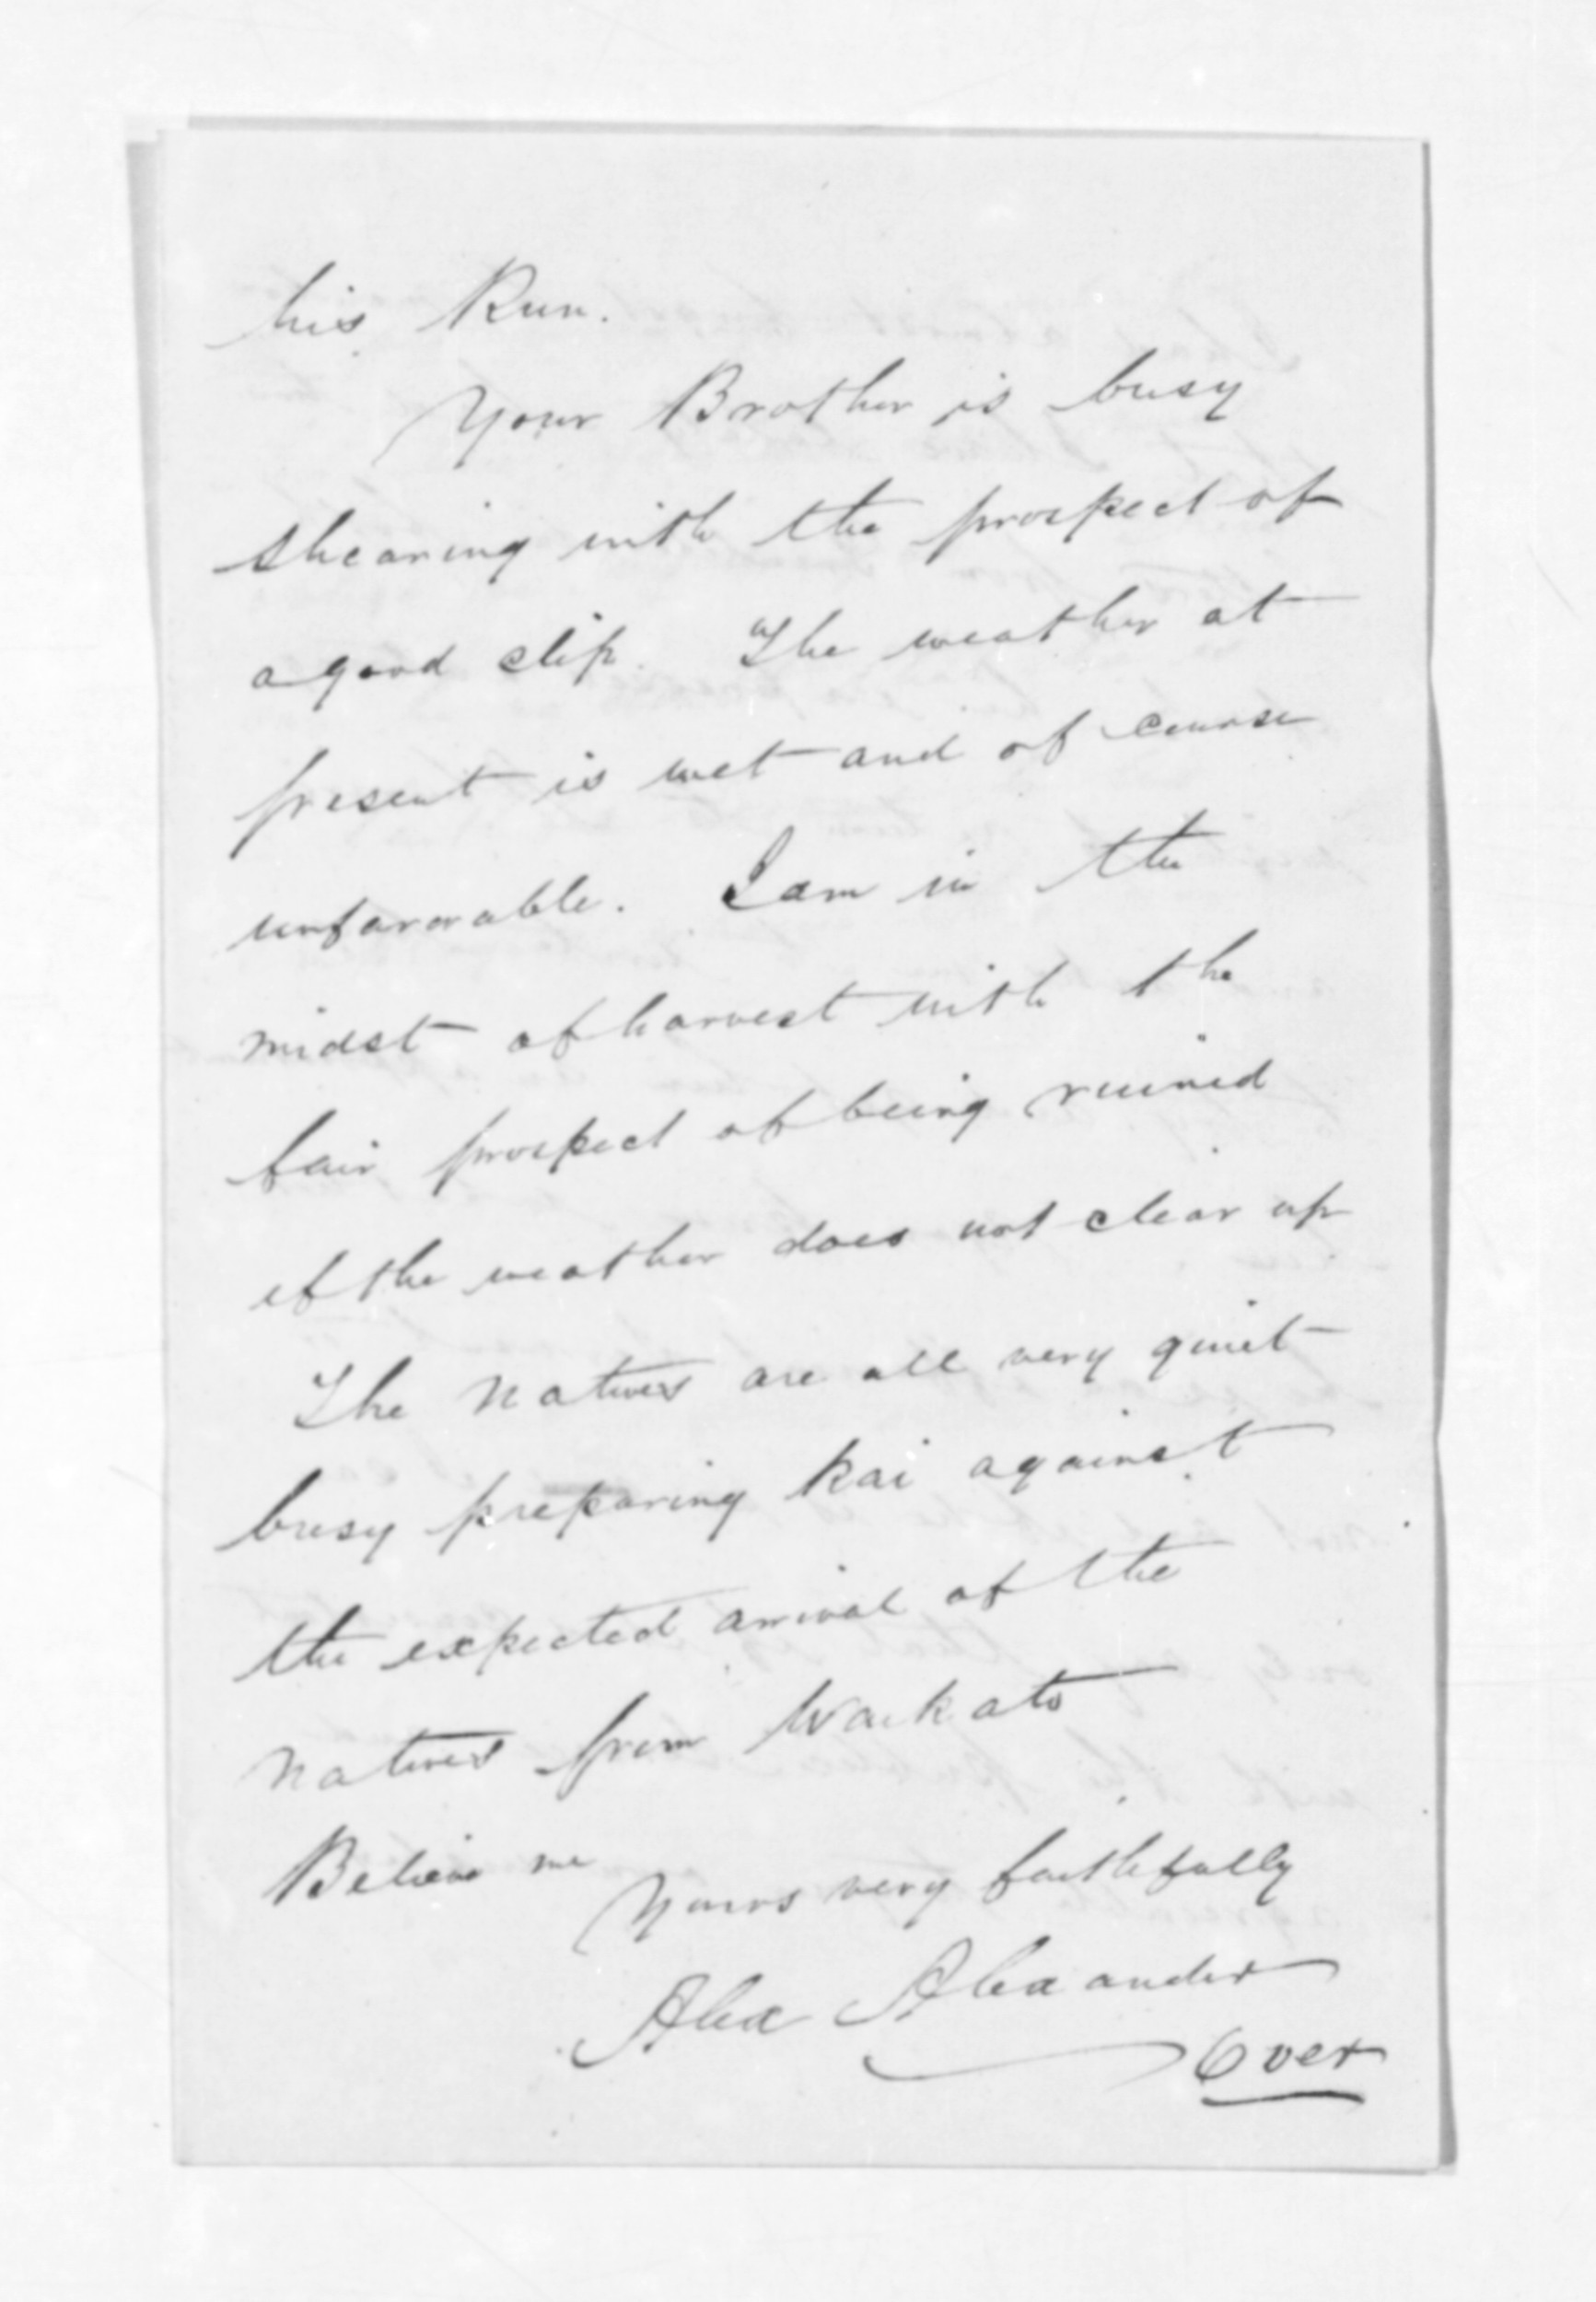 his Run.
Your Brother is busy
shearing with the prospect of
a good clip. The weather at
present is wet and of course
unfavorable. I am in the
midst of harvest with the
fair prospect of being ruined
if the weather does not clear up
The Natives are all very quiet
busy preparing Kai against
the expected arrival of the
Natives from Waikato
Believe me
Yours very faithfully
Alex Alexander
Over